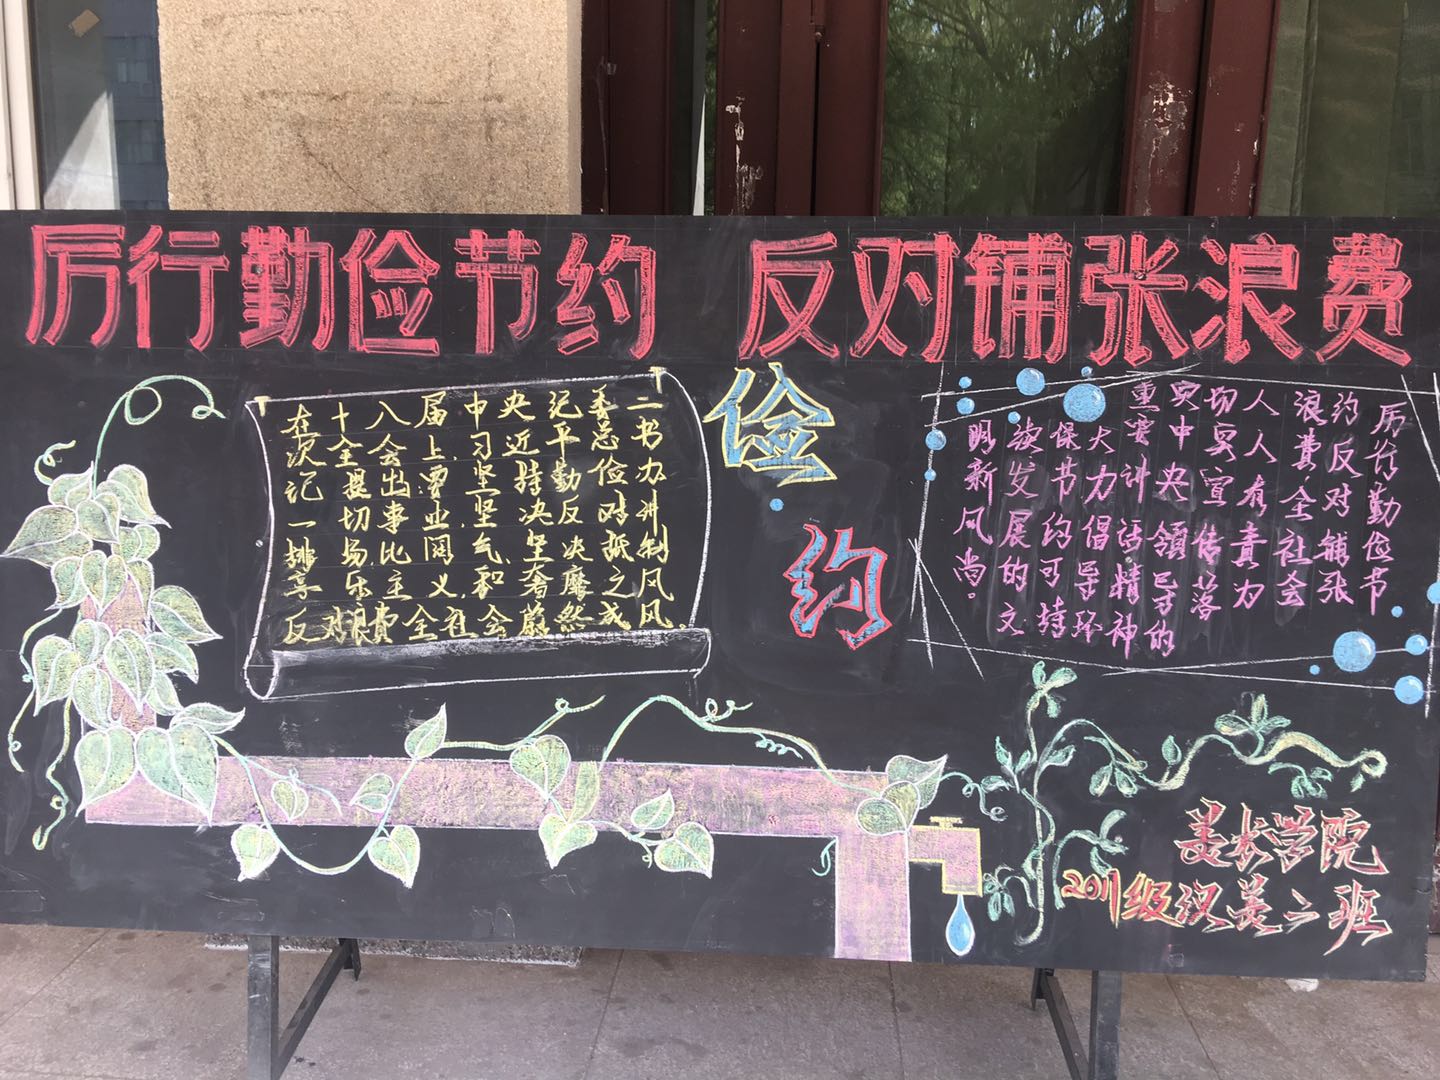 厉行勤俭节约 反对铺张浪费
在十入届中央记委二
次全会上.习近平总书
记提出要坚持勤俭办
一切事业.坚决反对讲
排场比阔气.坚决抵制
享乐主义.和奢靡之风
反对浪费全社会蔚然成风。
俭
约
厉行勤俭节
约反对铺张
浪费,全社会
人人有责为
切实宣传落
实中央领导的
重要讲话精神
大力倡导环
保节约可持
续发展的文
明新风尚。
美术学院
2011级汉美二班